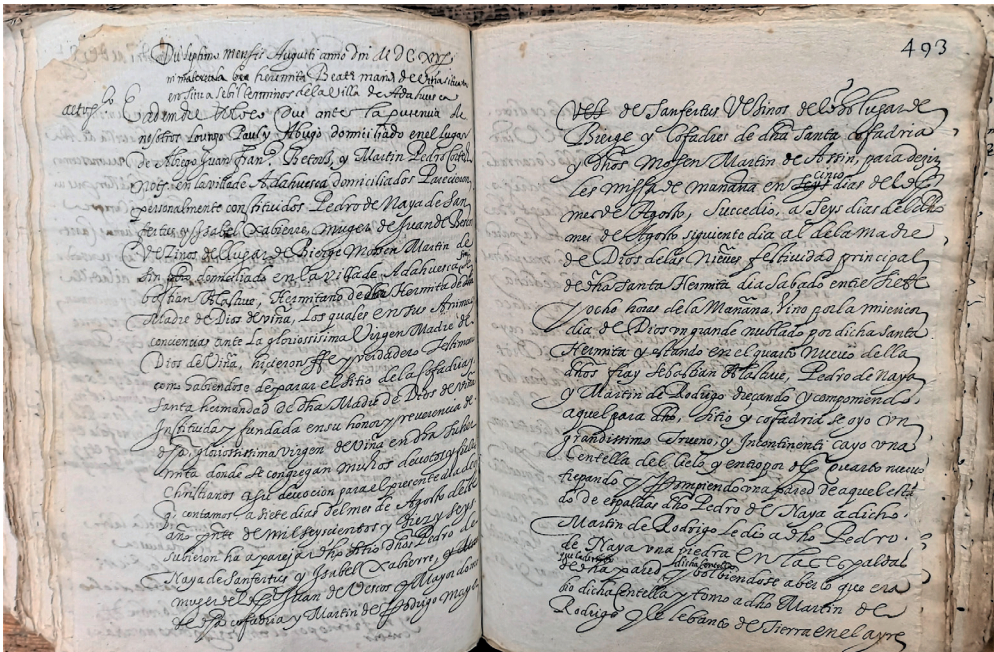 Die septimo mensis Augusti anno Dni MDCXVI
in hermita Beate marie de viña situ
en sitiada et terminos de la villa de Adahuesca
Eadem die Que ante la presencia de
nosotros Lorenço Paul y Abiego domiciliado en el lugar
de Abiego Juan
nots en la villa de Adahuesca domiciliados Parecieron
personalmente constituidos Pedro de Naya de San
fertus y Isabel Xabierre, muger de Juan de
Vezinos del lugar de Bierge Mossen Martin de
Arin domiciliado en la villa de Adahuesca
bastian Atalave, Hermitano de Hermita de
Madre de Dios de viña, Los quales en sus Animas
conciencias ante La gloriossissima Virgen Madre de
Dios de Viña, hicieron ffe y verdadero testimo
como habiendose de parar el sitio de la cofadria y
Santa hermandad de dha Madre de Dios de viña
Instituida y fundada en su honor y reverencia de
gloriossissima virgen de viña en dha Su her
mita donde se congregan muchos devotos y fieles
christianos a su devocion para el presente dia de
q contamos a siete dias del mes de Agosto deste
año pnte de mil seyscientos y diez y seys
subieron ha aparejar dho sitio dhos Pedro de
Naya de Sanfertus y Ysabel Xabierre, y
muger del Juan de y Mayordomo
de cofadria y Martin de Rodrigo Mayor
493
de Sanfertus Vezinos de dho lugar de
Bierge y Cofadres de dha Santa cofadria
y dhos Mossen Martin de Arin, para dezir
les missa de mañana en cinco dias del
mes de Agosto, Succedio, a Seys dias del dho
mes de Agosto siguiente dia al de la Madre
de Dios de las Nieues festividad principal
de dha Santa Hermita dia Sabado entre siete
y ocho horas de la Mañana, Vino por la misericor
dia de Dios un grande nublado por dicha Santa
Hermita y estando en el quarto nuevo della
dhos fray Sebastian Atalave, Pedro de Naya
y Martin de Rodrigo drecando y componiendo
aquel para dho Sitio y cofadria se oyo un
grandissimo trueno, y Incontinenti cayo una
Centella del Cielo y entro por quarto nuevo
rompiendo una pared de aquel estan
do de espaldas dho Pedro de Naya a dicho
Martin de Rodrigo le dio a dho Pedro
de Naya una piedra en la espalda
que la derribo dicha centella
de dha pared y bolbiendose a ber lo que era
bio dicha Centella y tomo a dho Martin de
Rodrigo y le lebanto de tierra en el ayre